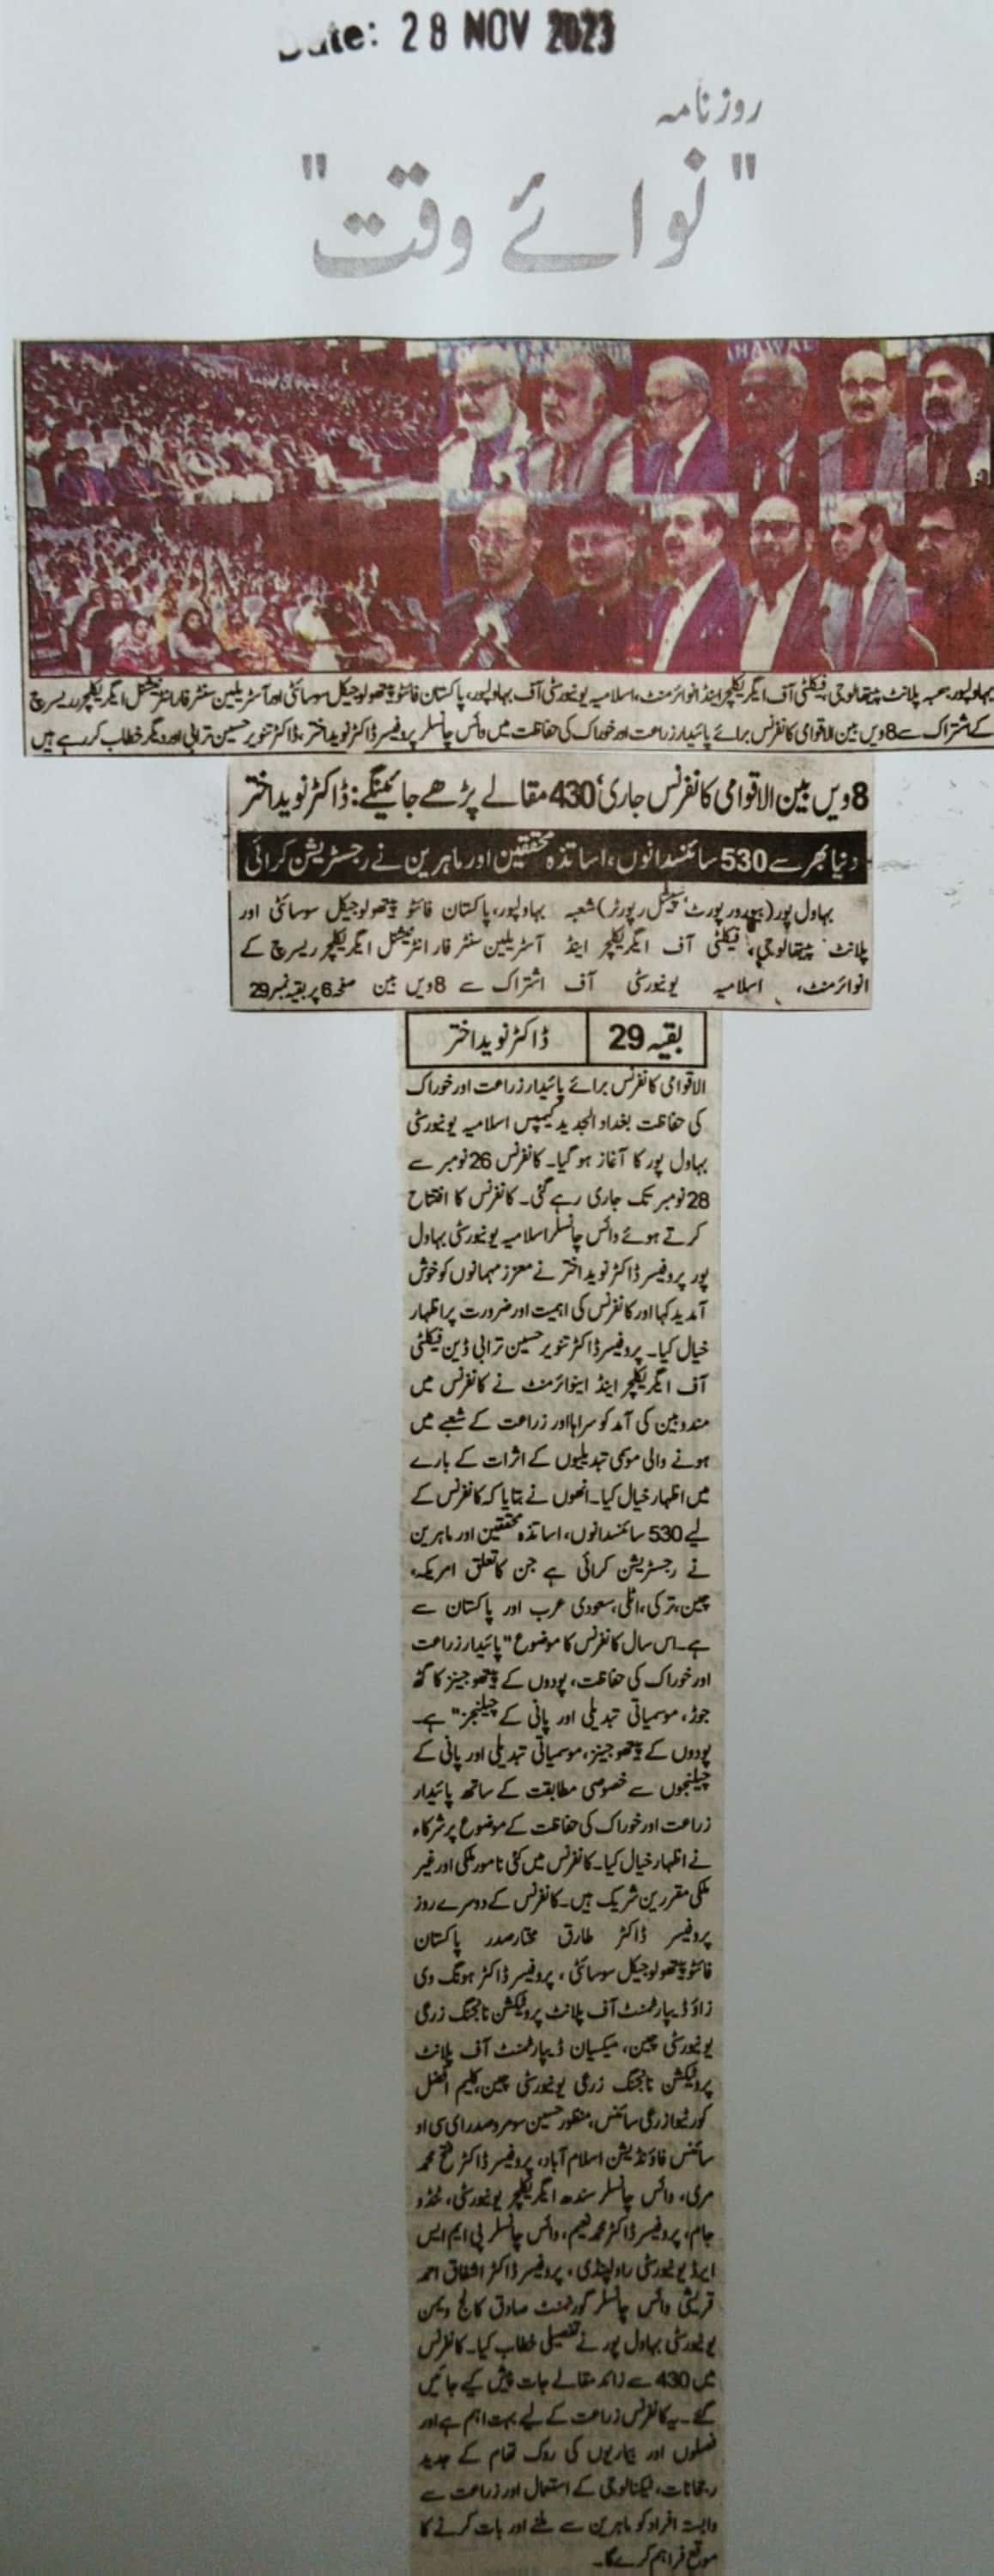 Date: 28 NOV 2023
روزنامہ
"نوائے وقت"
بہاولپور، شعبہ پلانٹ پیتھالوجی، فیکلٹی آف ایگریکلچر اینڈ انوائرمنٹ، اسلامیہ یونیورسٹی آف بہاولپور، پاکستان فائٹو پیتھولوجیکل سوسائٹی اور آسٹریلین سنٹر فار انٹرنیشنل ایگریکلچر ریسرچ
کے اشتراک سے 8ویں بین الاقوامی کانفرنس برائے پائیدار زراعت اور خوراک کی حفاظت میں وائس چانسلر پروفیسر ڈاکٹر نوید اختر، ڈاکٹر تنویر حسین ترابی اور دیگر خطاب کر رہے ہیں
8ویں بین الاقوامی کانفرنس جاری، 430 مقالے پڑھے جائینگے: ڈاکٹر نوید اختر
دنیا بھر سے 530 سائنسدانوں، اساتذہ محققین اور ماہرین نے رجسٹریشن کرائی
بہاول پور (بیورو رپورٹ، سپیشل رپورٹر) شعبہ
پلانٹ پیتھالوجی، فیکلٹی آف ایگریکلچر اینڈ
انوائرمنٹ، اسلامیہ یونیورسٹی آف
بہاولپور، پاکستان فائٹو پیتھولوجیکل سوسائٹی اور
آسٹریلین سنٹر فار انٹرنیشنل ایگریکلچر ریسرچ کے
اشتراک سے 8ویں بین صفحہ 6 پر بقیہ نمبر 29
بقیہ 29 ڈاکٹر نوید اختر
الاقوامی کانفرنس برائے پائیدار زراعت اور خوراک
کی حفاظت بغداد الجدید کیمپس اسلامیہ یونیورسٹی
بہاول پور کا آغاز ہو گیا۔ کانفرنس 26 نومبر سے
28 نومبر تک جاری رہے گی۔ کانفرنس کا افتتاح
کرتے ہوئے وائس چانسلر اسلامیہ یونیورسٹی بہاول
پور پروفیسر ڈاکٹر نوید اختر نے معزز مہمانوں کو خوش
آمدید کہا اور کانفرنس کی اہمیت اور ضرورت پر اظہار
خیال کیا۔ پروفیسر ڈاکٹر تنویر حسین ترابی ڈین فیکلٹی
آف ایگریکلچر اینڈ اینوائرمنٹ نے کانفرنس میں
مندوبین کی آمد کو سراہا اور زراعت کے شعبے میں
ہونے والی موسمی تبدیلیوں کے اثرات کے بارے
میں اظہار خیال کیا۔ انھوں نے بتایا کہ کانفرنس کے
لیے 530 سائنسدانوں، اساتذہ محققین اور ماہرین
نے رجسٹریشن کرائی ہے جن کا تعلق امریکہ،
چین، ترکی، اٹلی، سعودی عرب اور پاکستان سے
ہے۔ اس سال کانفرنس کا موضوع "پائیدار زراعت
اور خوراک کی حفاظت، پودوں کے پیتھوجینز کا گٹھ
جوڑ، موسمیاتی تبدیلی اور پانی کے چیلنجز" ہے۔
پودوں کے پیتھوجینز، موسمیاتی تبدیلی اور پانی کے
چیلنجوں سے خصوصی مطابقت کے ساتھ پائیدار
زراعت اور خوراک کی حفاظت کے موضوع پر شرکاء
نے اظہار خیال کیا۔ کانفرنس میں کئی نامور ملکی اور غیر
ملکی مقررین شریک ہیں۔ کانفرنس کے دوسرے روز
پروفیسر ڈاکٹر طارق مختار صدر پاکستان
فائٹو پیتھولوجیکل سوسائٹی، پروفیسر ڈاکٹر ہونگ وی
زاؤ ڈیپارٹمنٹ آف پلانٹ پروٹیکشن نانجنگ زرعی
یونیورسٹی چین، میکسیان ڈیپارٹمنٹ آف پلانٹ
پروٹیکشن نانجنگ زرعی یونیورسٹی چین، کلیم افضل
کورٹیوا زرعی سائنس، منظور حسین سومرو صدر ای سی او
سائنس فاؤنڈیشن اسلام آباد، پروفیسر ڈاکٹر فتح محمد
مری، وائس چانسلر سندھ ایگریکلچر یونیورسٹی، ٹنڈو
جام، پروفیسر ڈاکٹر محمد نعیم، وائس چانسلر پی ایم ایس
ایرڈ یونیورسٹی راولپنڈی، پروفیسر ڈاکٹر اشفاق احمد
قریشی وائس چانسلر گورنمنٹ صادق کالج ویمن
یونیورسٹی بہاول پور نے تفصیلی خطاب کیا۔ کانفرنس
میں 430 سے زائد مقالے جات پیش کیے جائیں
گے۔ یہ کانفرنس زراعت کے لیے بہت اہم ہے اور
فصلوں اور بیماریوں کی روک تھام کے جدید
رجحانات، ٹیکنالوجی کے استعمال اور زراعت سے
وابستہ افراد کو ماہرین سے ملنے اور بات کرنے کا
موقع فراہم کرے گا۔